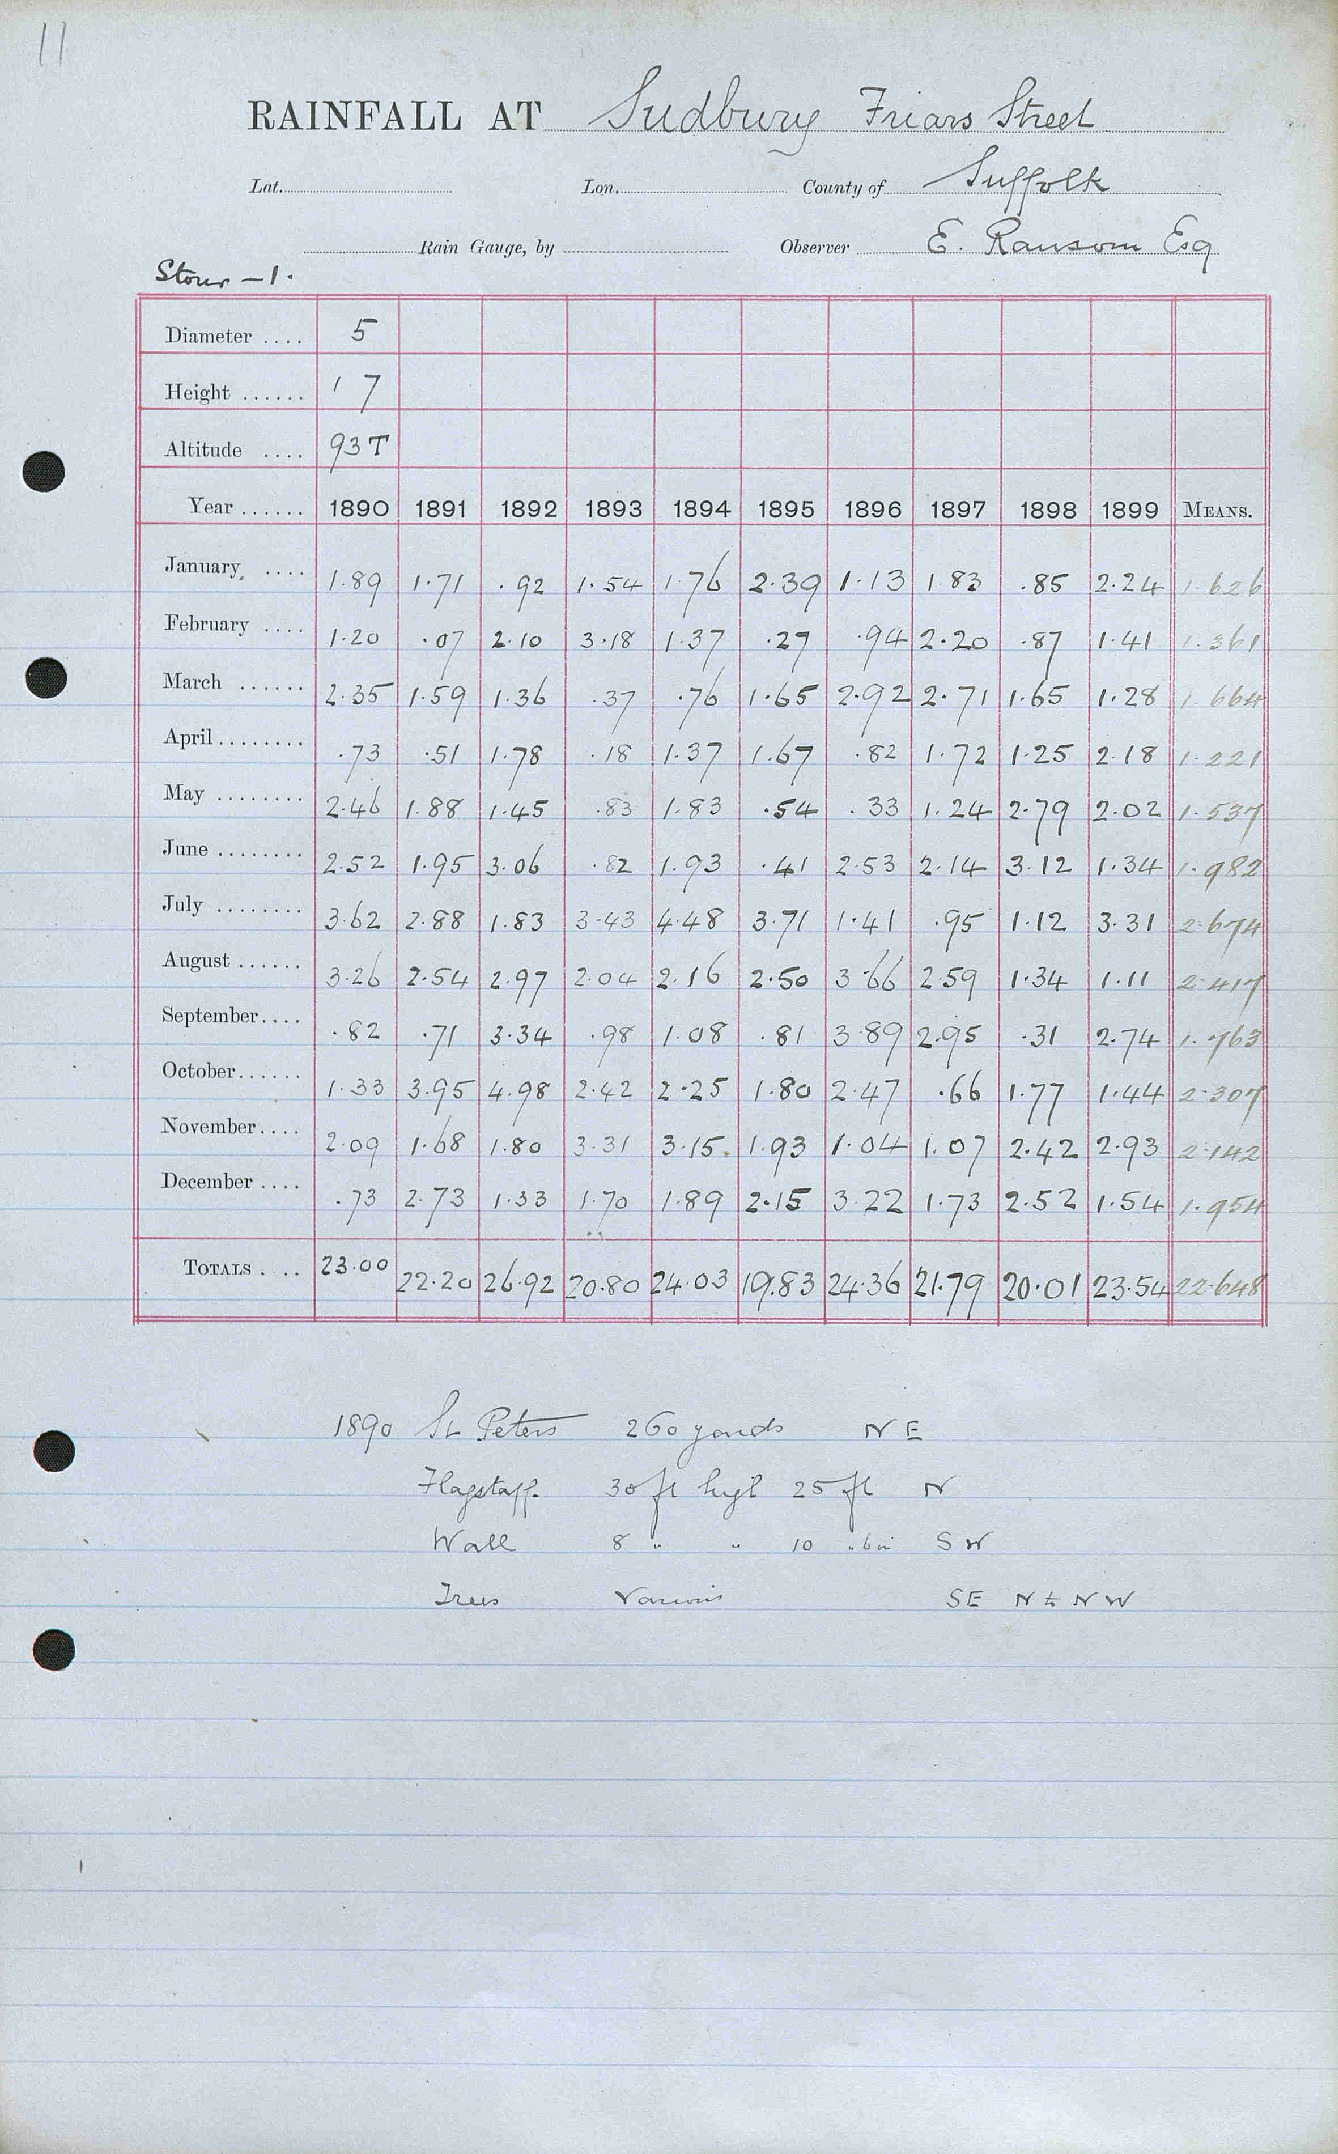 11
RAINFALL AT Sudbury Friars Street
Lat. Lon. County of Suffolk
Rain Gauge, by Observer E. Ransom Esq
Stour - 1.
Diameter .... 5
Height ...... 1 7
Altitude .... 93 T
Year ...... 1890 1891 1892 1893 1894 1895 1896 1897 1898 1899 MEANS.
January .... 1.89 1.71 .92 1.54 1.76 2.39 1.13 1.83 .85 2.24 1.626
February .... 1.20 .07 2.10 3.18 1.37 .27 .94 2.20 .87 1.41 1.361
March ...... 2.35 1.59 1.36 .37 .76 1.65 2.92 2.71 1.65 1.28 1.664
April ........ .73 .51 1.78 .18 1.37 1.67 .82 1.72 1.25 2.18 1.221
May ........ 2.46 1.88 1.45 .83 1.83 .54 .33 1.24 2.79 2.02 1.537
June ........ 2.52 1.95 3.06 .82 1.93 .41 2.53 2.14 3.12 1.34 1.982
July ........ 3.62 2.88 1.83 3.43 4.48 3.71 1.41 .95 1.12 3.31 2.674
August ...... 3.26 2.54 2.97 2.04 2.16 2.50 3.66 2.59 1.34 1.11 2.417
September .... .82 .71 3.34 .98 1.08 .81 3.89 2.95 .31 2.74 1.763
October ...... 1.33 3.95 4.98 2.42 2.25 1.80 2.47 .66 1.77 1.44 2.307
November .... 2.09 1.68 1.80 3.31 3.15 1.93 1.04 1.07 2.42 2.93 2.142
December .... .73 2.73 1.33 1.70 1.89 2.15 3.22 1.73 2.52 1.54 1.954
TOTALS .... 23.00 22.20 26.92 20.80 24.03 19.83 24.36 21.79 20.01 23.54 22.648
1890 St Peters 260 yards N E
Flagstaff. 30 ft high 25 ft N
Wall 8 " " 10 " 6 in S W
Trees Various SE N & N W